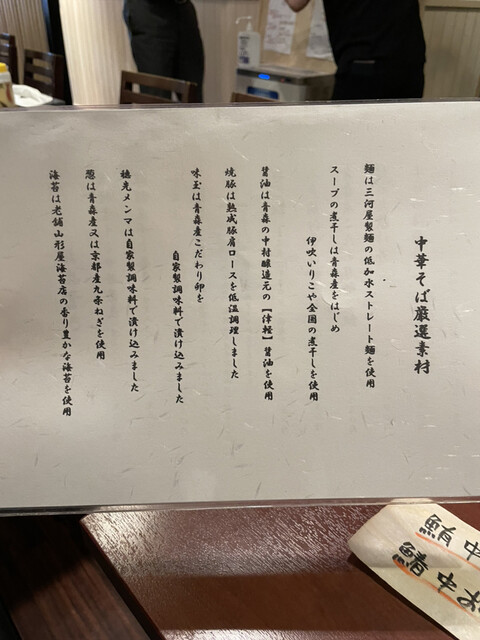 中華そば厳選素材
麺は三河屋製麺の低加水ストレート麺を使用
スープの煮干しは青森産をはじめ
伊吹いりこや全国の煮干しを使用
醤油は青森の中村醸造元の【津軽】醤油を使用
焼豚は熟成豚肩ロースを低温調理しました
味玉は青森産こだわり卵を
自家製調味料で漬け込みました
穂先メンマは自家製調味料で漬け込みました
葱は青森産又は京都産九条ねぎを使用
海苔は老舗山形屋海苔店の香り豊かな海苔を使用
鮪中
鯖中